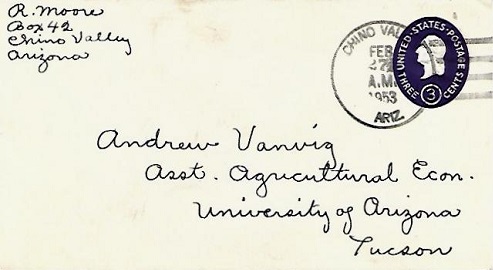 R. Moore
Box 42
Chino Valley
Arizona
CHINO VAL
FEB
27
A.M.
1953
ARIZ.
UNITED·STATES·POSTAGE
THREE 3 CENTS
Andrew Vanvig
Asst. Agricultural Econ.
University of Arizona
Tucson